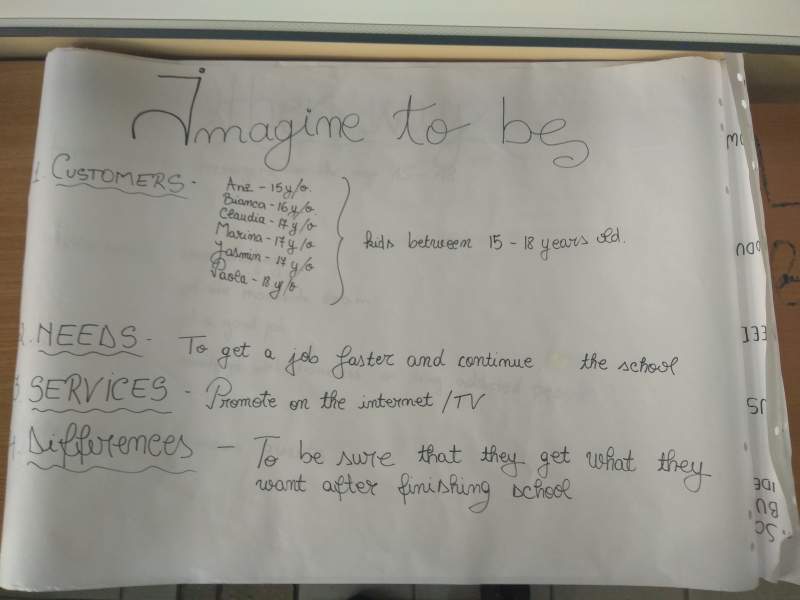 Imagine to be
1. CUSTOMERS -
Ana - 15 y/o.
Bianca - 16 y/o.
Claudia - 17 y/o
Marina - 17 y/o
Yasmin - 17 y/o
Paola - 18 y/o
kids between 15 - 18 years old.
2. NEEDS - To get a job faster and continue the school
3 SERVICES - Promote on the internet / TV
4. Differences - To be sure that they get what they
want after finishing school